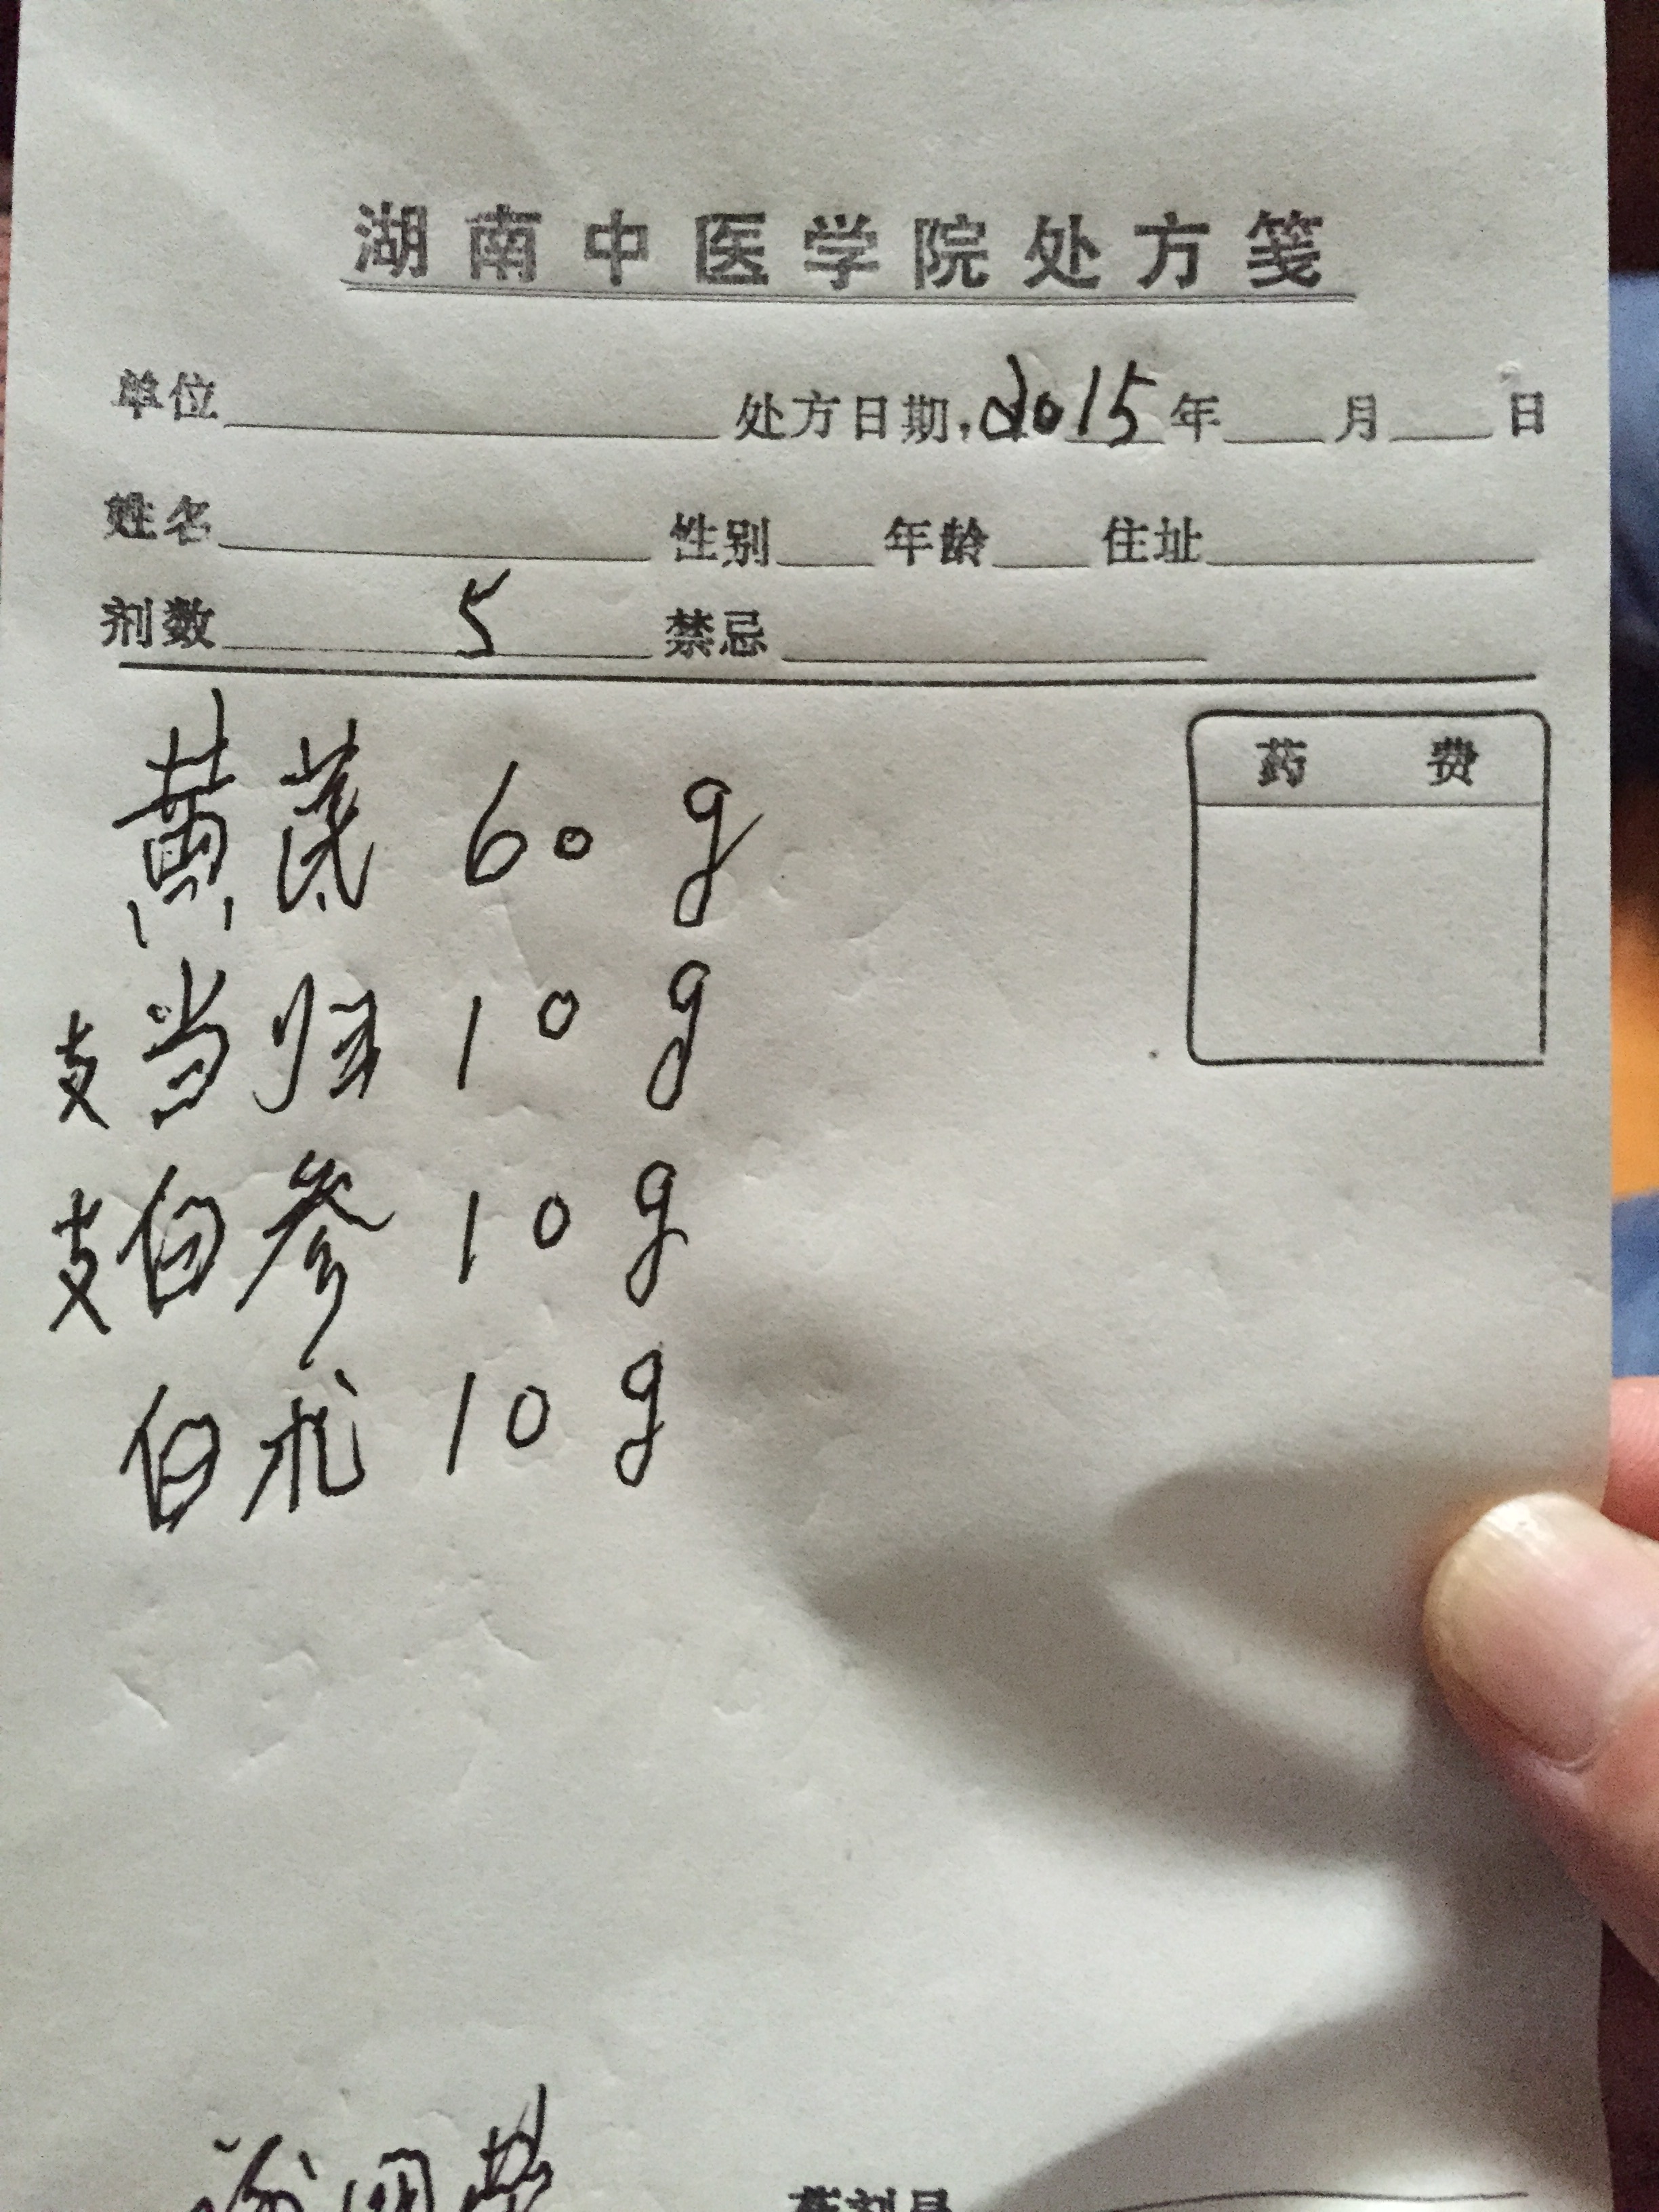 湖南中医学院处方笺
单位 处方日期 2015年 月 日
姓名 性别 年龄 住址
剂数 5 禁忌
药费
黄芪 60g
支当归 10g
支白参 10g
白术 10g
药剂员